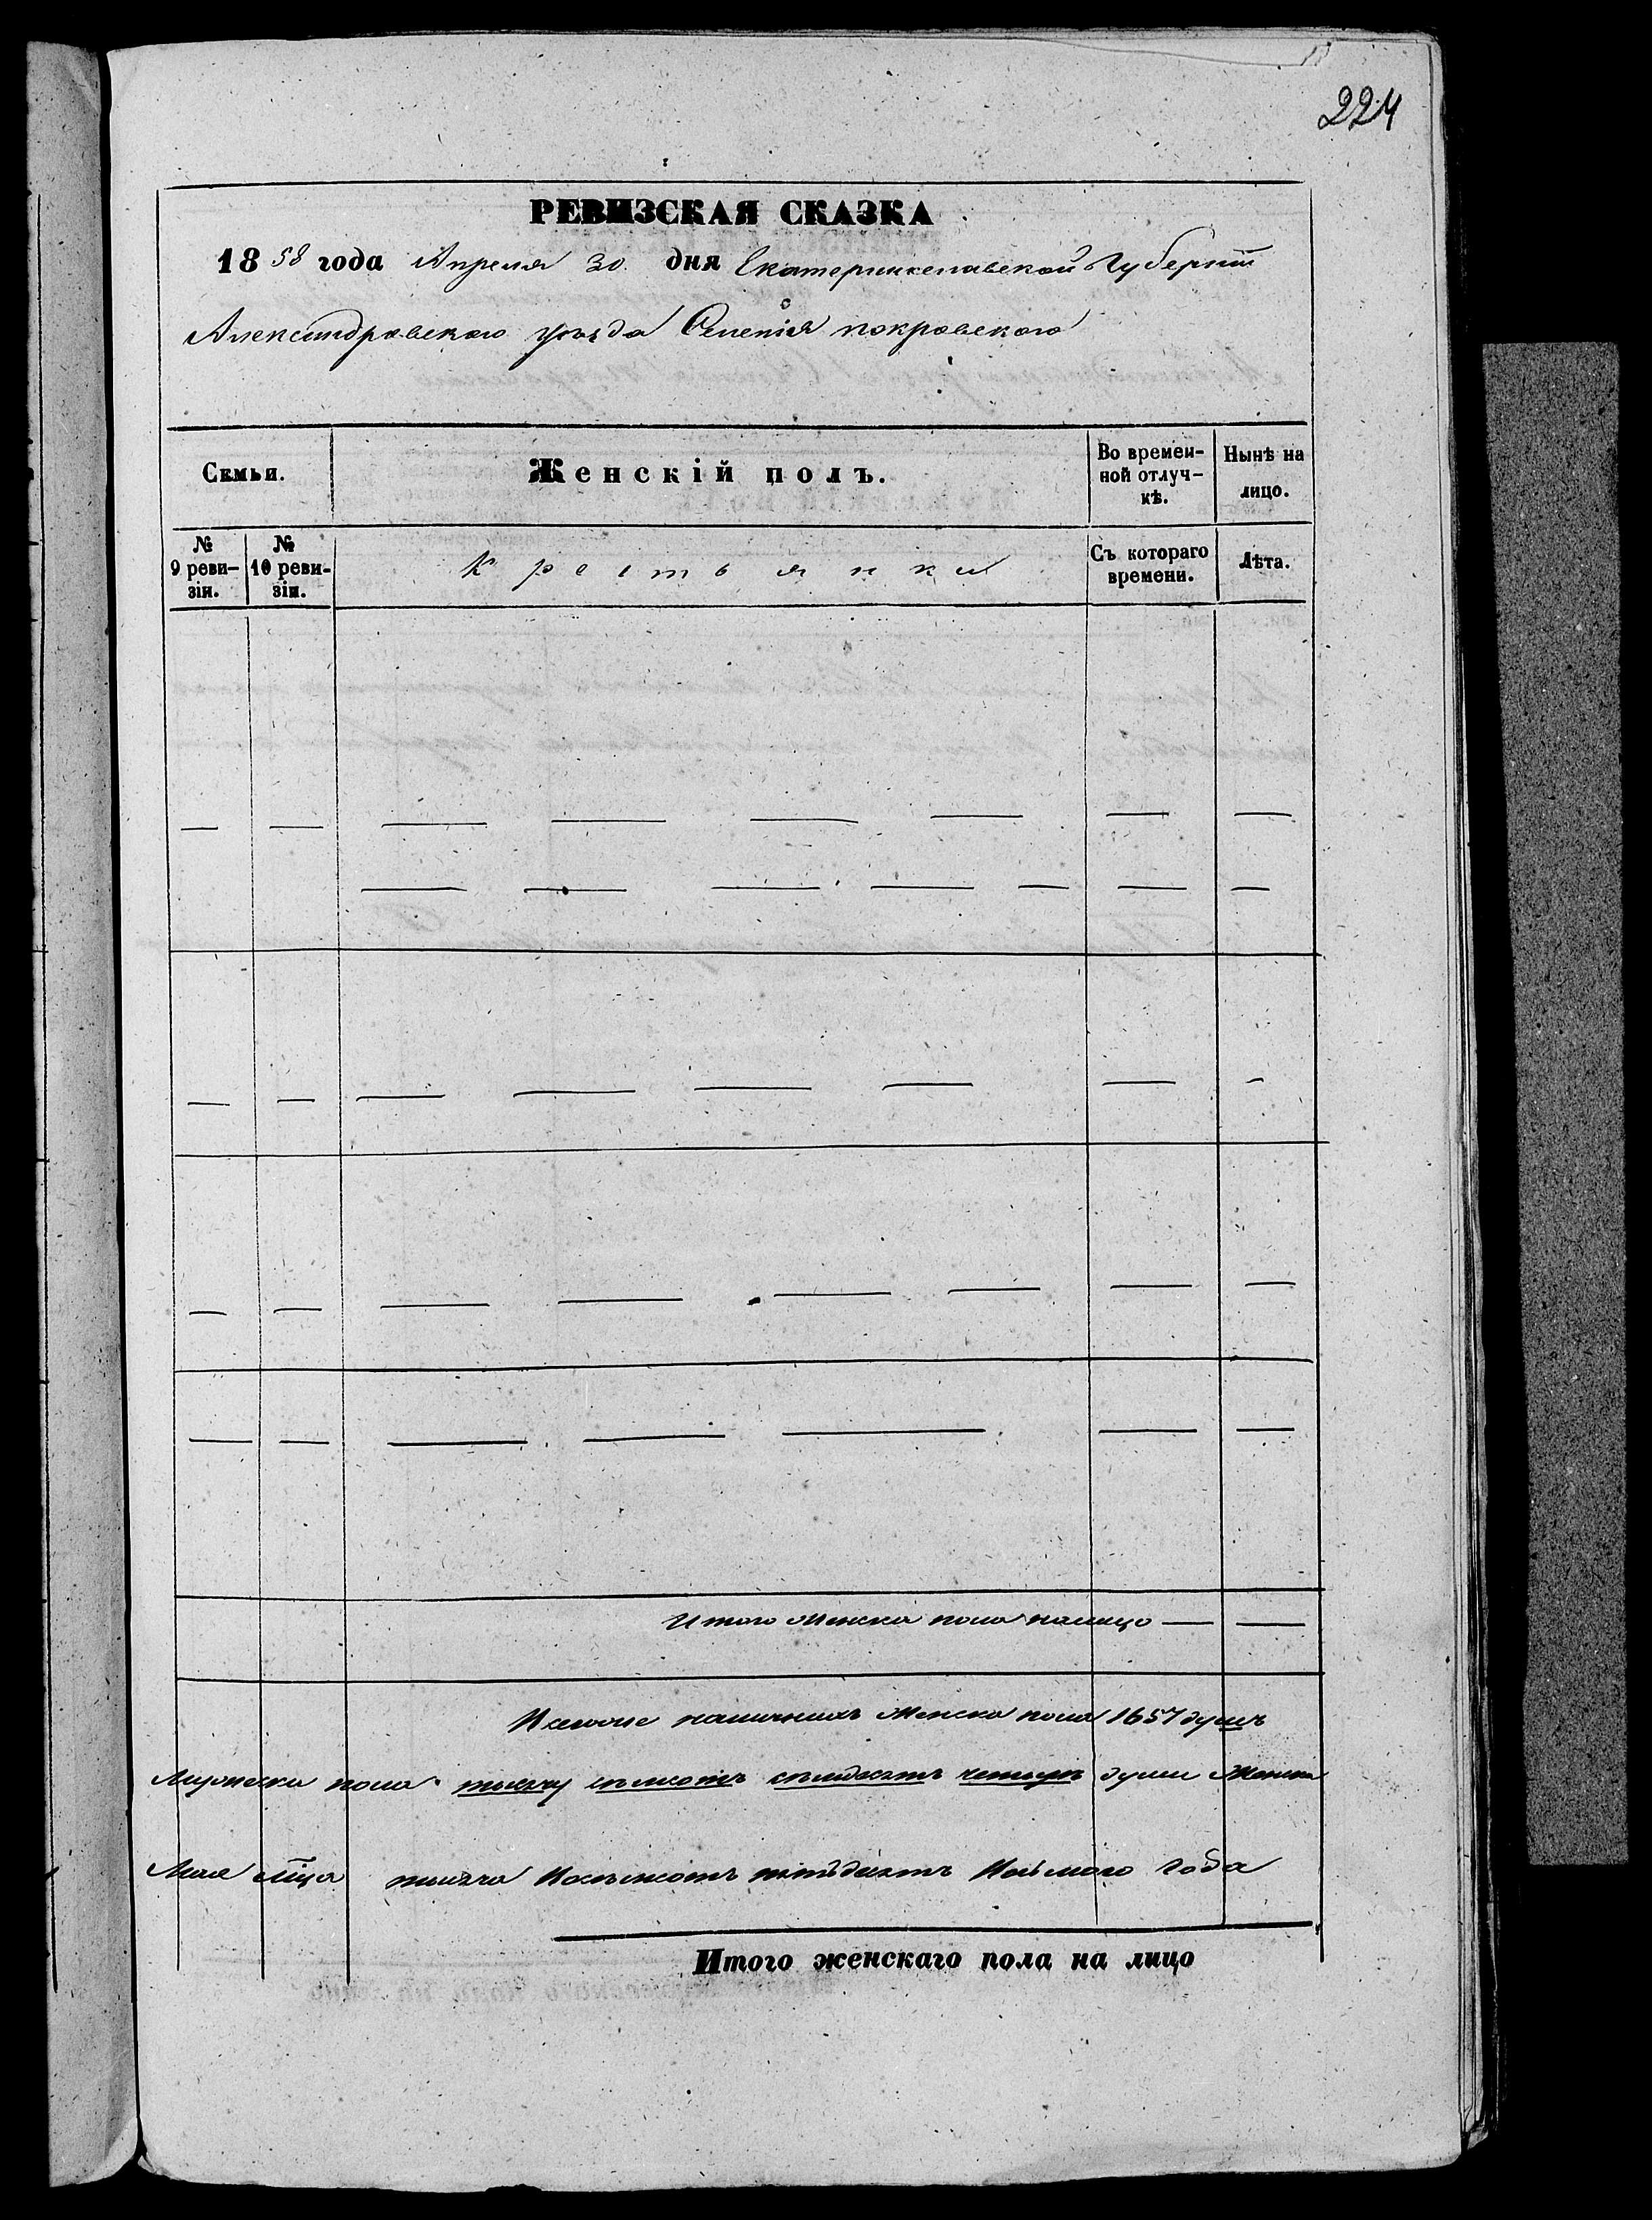 224
РЕВИЗСКАЯ СКАЗКА
1858 года Апреля 30 дня Екатеринославской Губерніи
Александровского уѣзда Селенія покровского
Семьи.
Женскій полъ.
Во времен-
ной отлуч-
кѣ.
Нынѣ на
лицо.
№
9 реви-
зіи.
№
10 реви-
зіи.
Крестьянки
Съ котораго
времени.
Лѣта.
Итого Женска пола налицо
наличныхъ Женска пола 1657 душъ
Мужеска пола тысячу семьдесятъ четыре души Женска
Мая мца тысяча восемьсотъ пятьдесятъ года
Итого женскаго пола на лицо